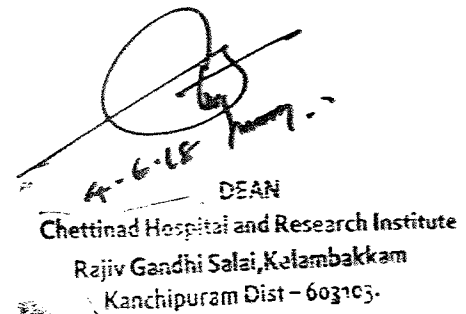 4-6-18
DEAN
Chettinad Hospital and Research Institute
Rajiv Gandhi Salai,Kelambakkam
Kanchipuram Dist – 603103.